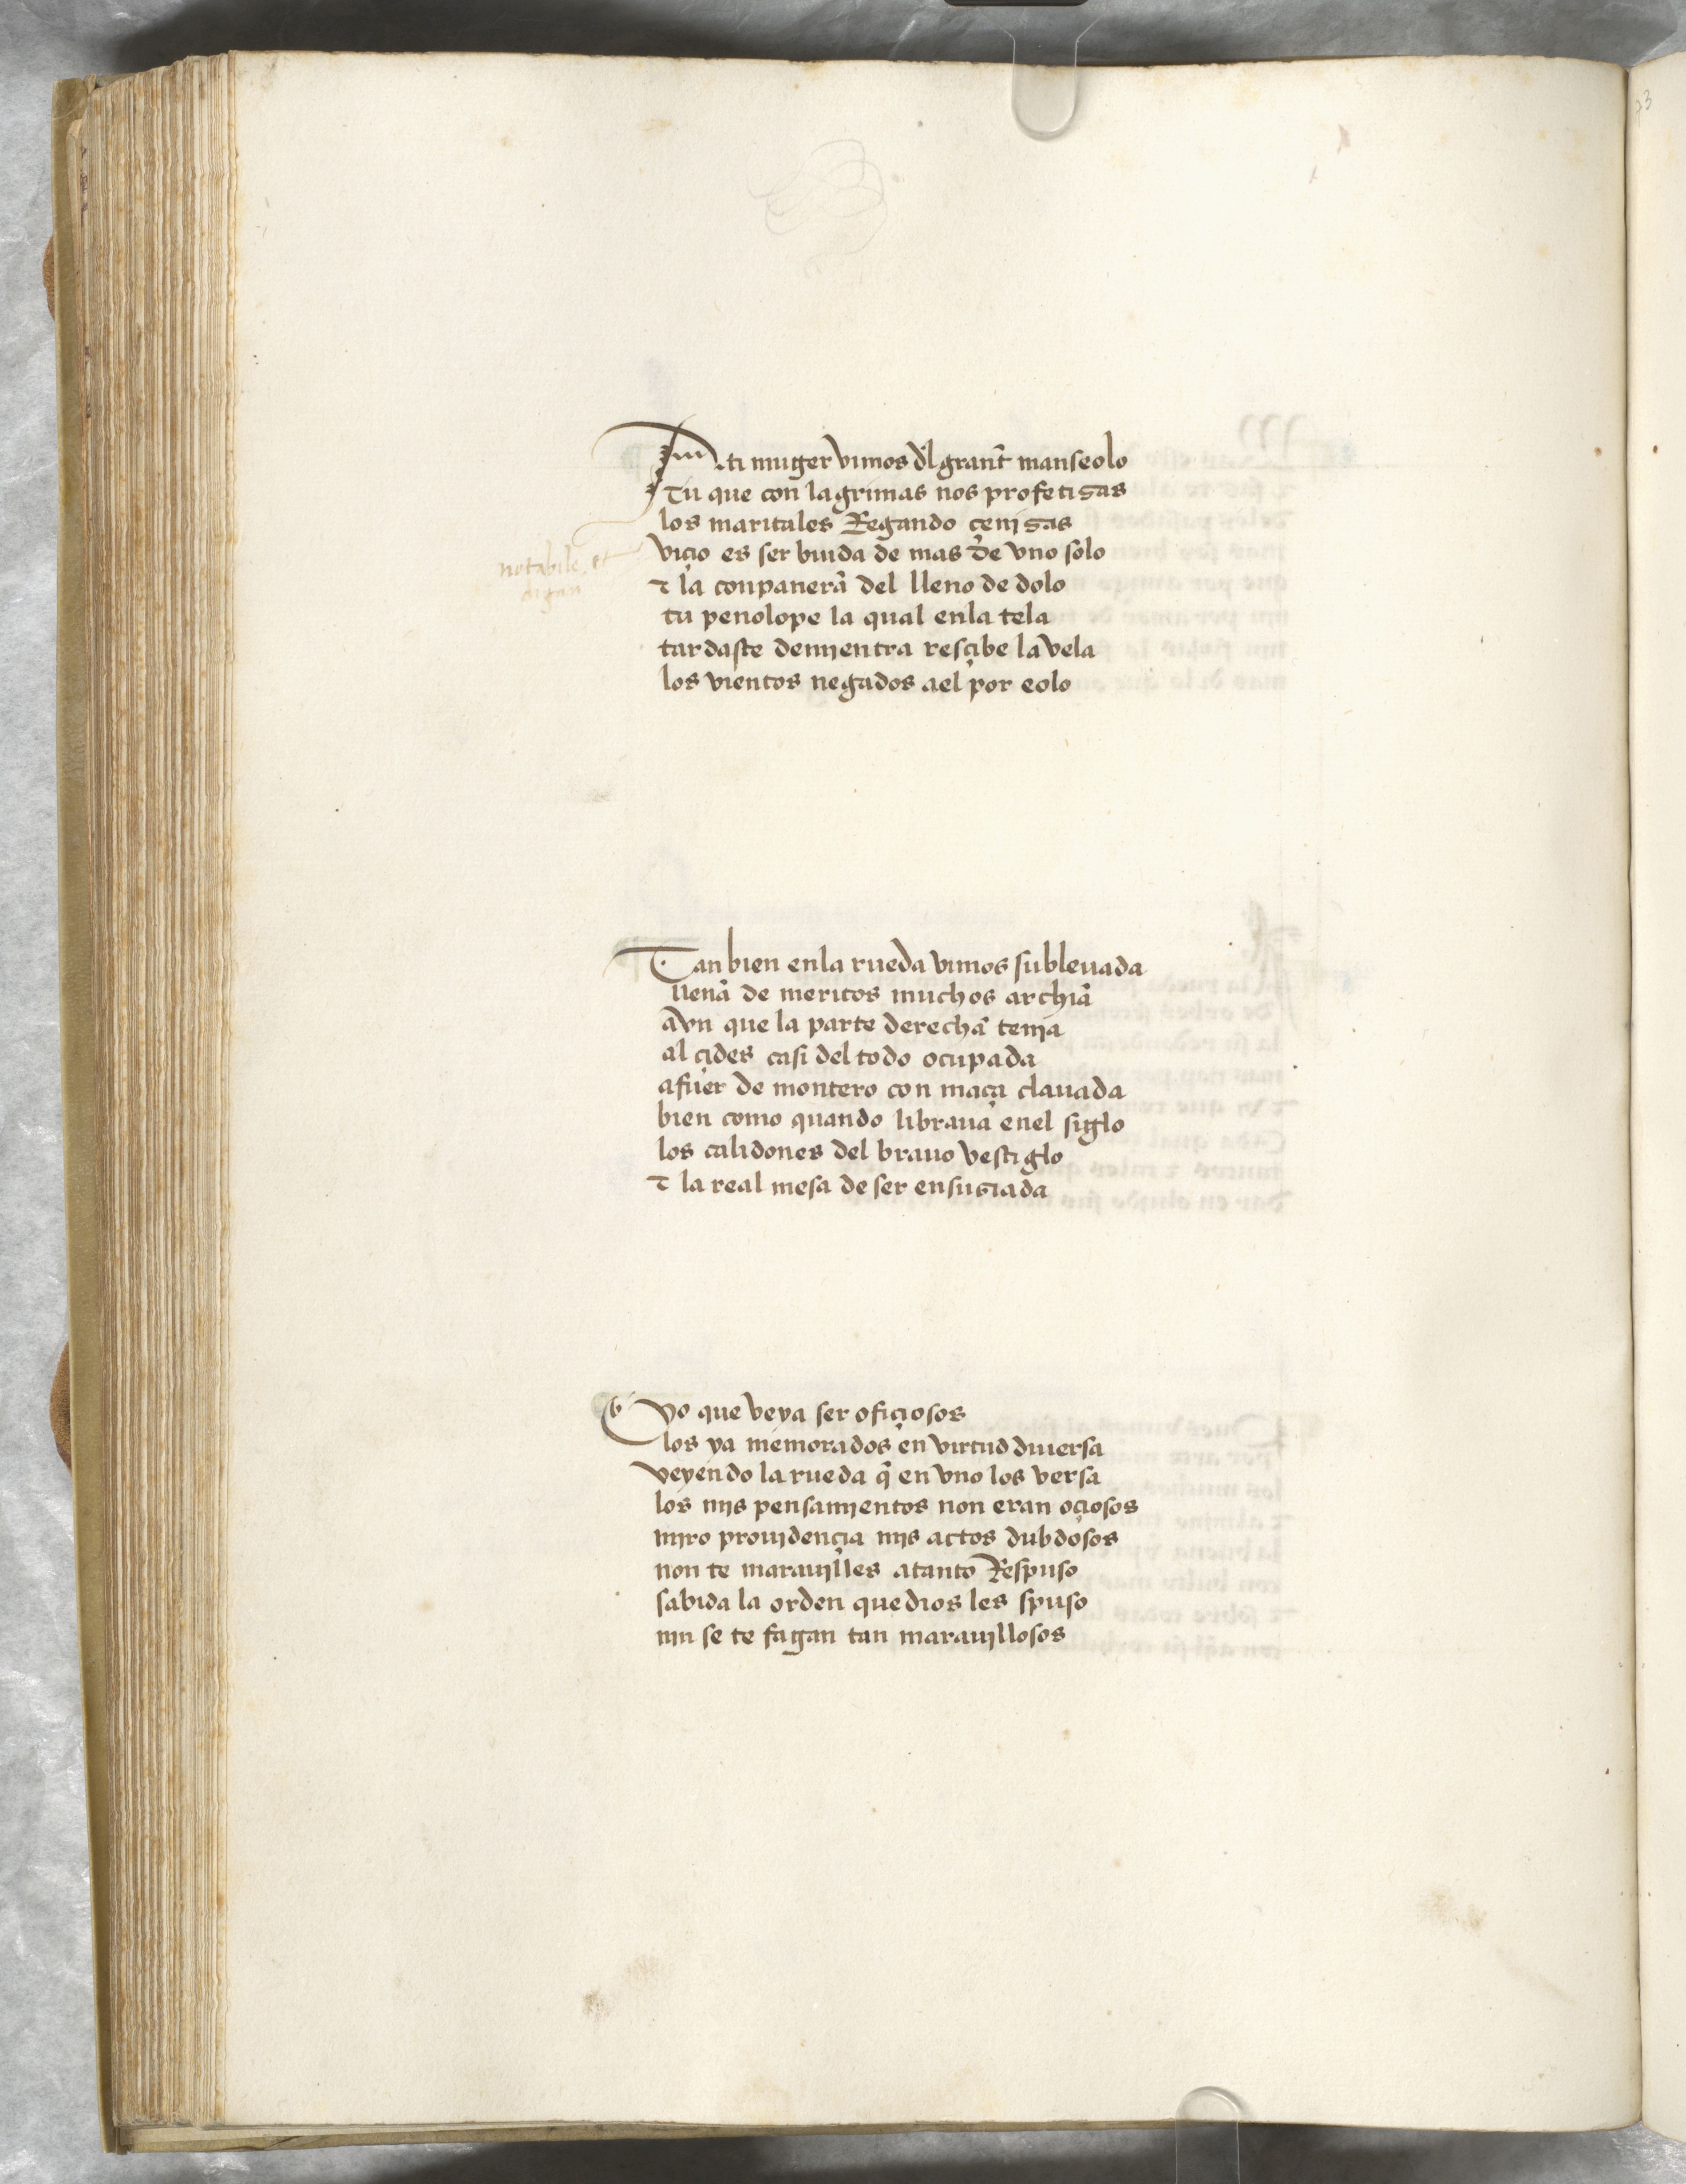 A ti muger vimos dl grant manseolo
tu que con lagrimas nos profetizas
los maritales Regando çenizas
viçio es ser biuda de mas de vno solo
τ la conpanera del lleno de dolo
tu penolope la qual enla tela
tardaste demientra resçibe la vela
los vientos negados ael por eolo
notabile et
Tan bien enla rueda vimos subleuada
llena de meritos muchos archia
avn que la parte derecha tenja
alçides casi del todo ocupada
afuer de montero con maça clauada
bien como quando libraua enel siglo
los calidones del brauo vestiglo
τ la real mesa de ser ensuziada
Yo que veya ser ofiçiosos
los ya memorados en virtud diuersa
veyendo la rueda q̃ en vno los versa
los mjs pensamjentos non eran oçiosos
mjro proujdençia mjs actos dubdosos
non te maraujlles atanto Respuso
sabida la orden que dios les spuso
njn se te fagan tan maraujllosos